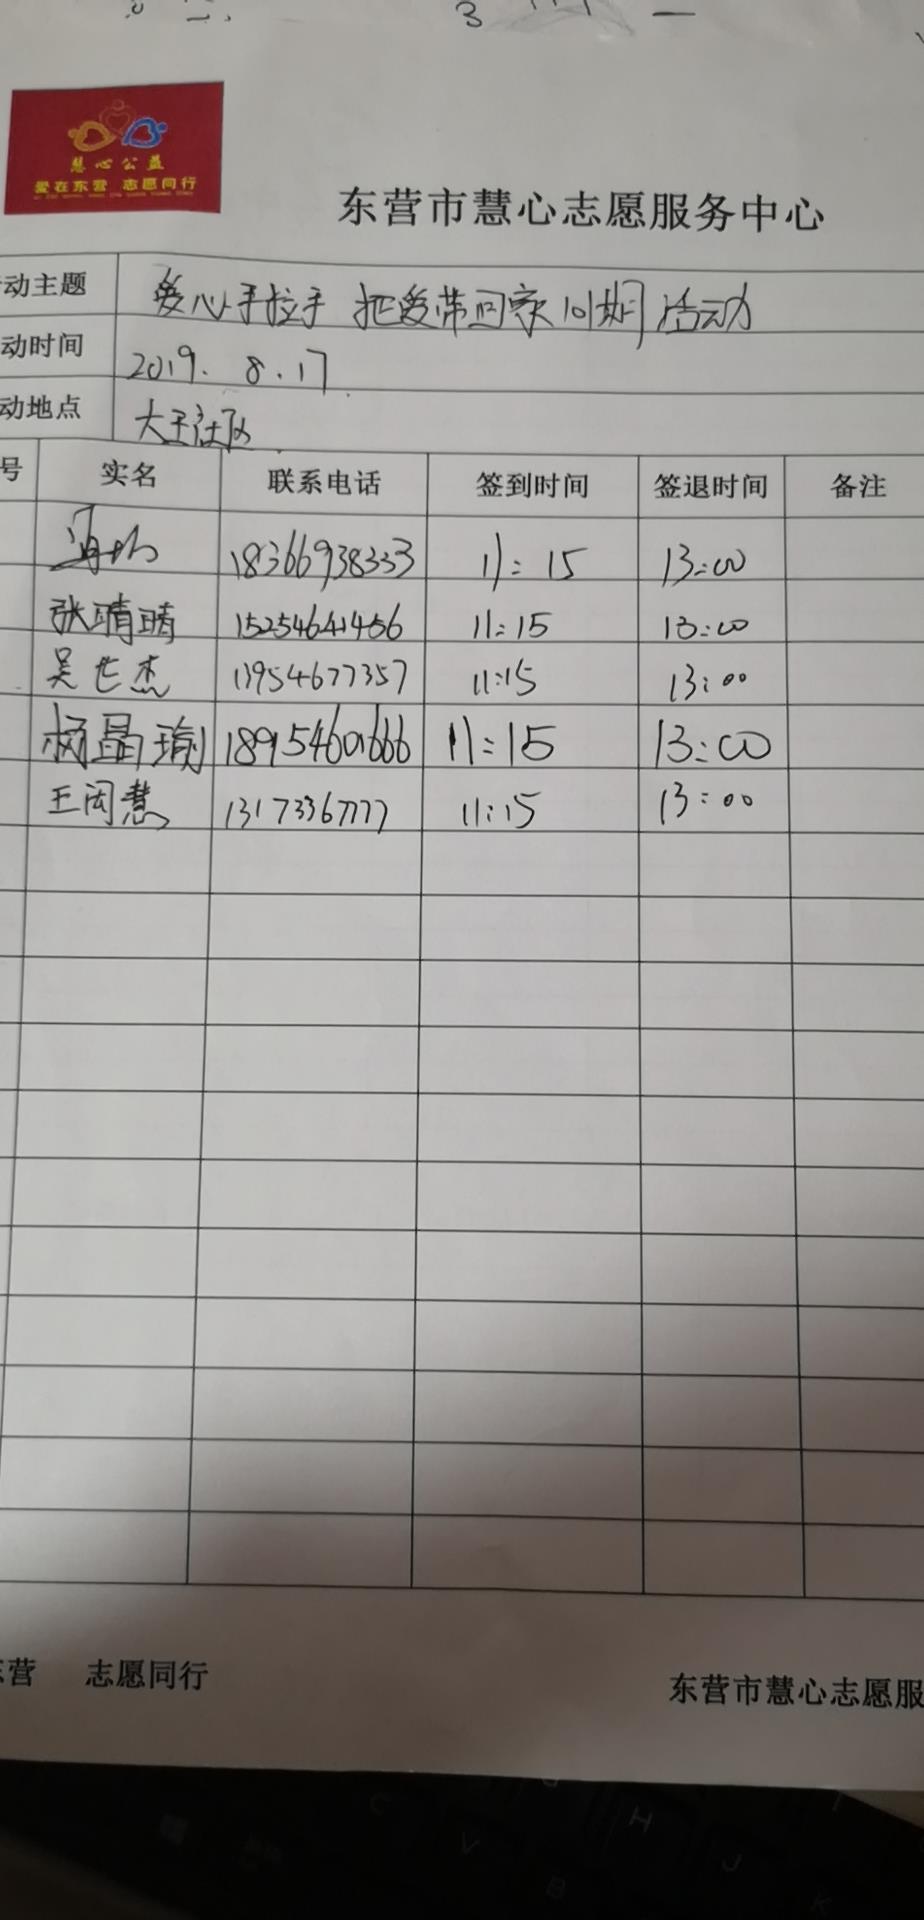 慧心公益
爱在东营 志愿同行
东营市慧心志愿服务中心
动主题 爱心手拉手 把爱带回家 慰问活动
动时间 2019.8.17
动地点 大王社区
号 实名 联系电话 签到时间 签退时间 备注
18366938333 11:15 13:00
张晴晴 15254641456 11:15 13:00
吴世杰 13954677357 11:15 13:00
杨晶瑜 18954601666 11:15 13:00
王闵慧 13173367777 11:15 13:00
营 志愿同行
东营市慧心志愿服